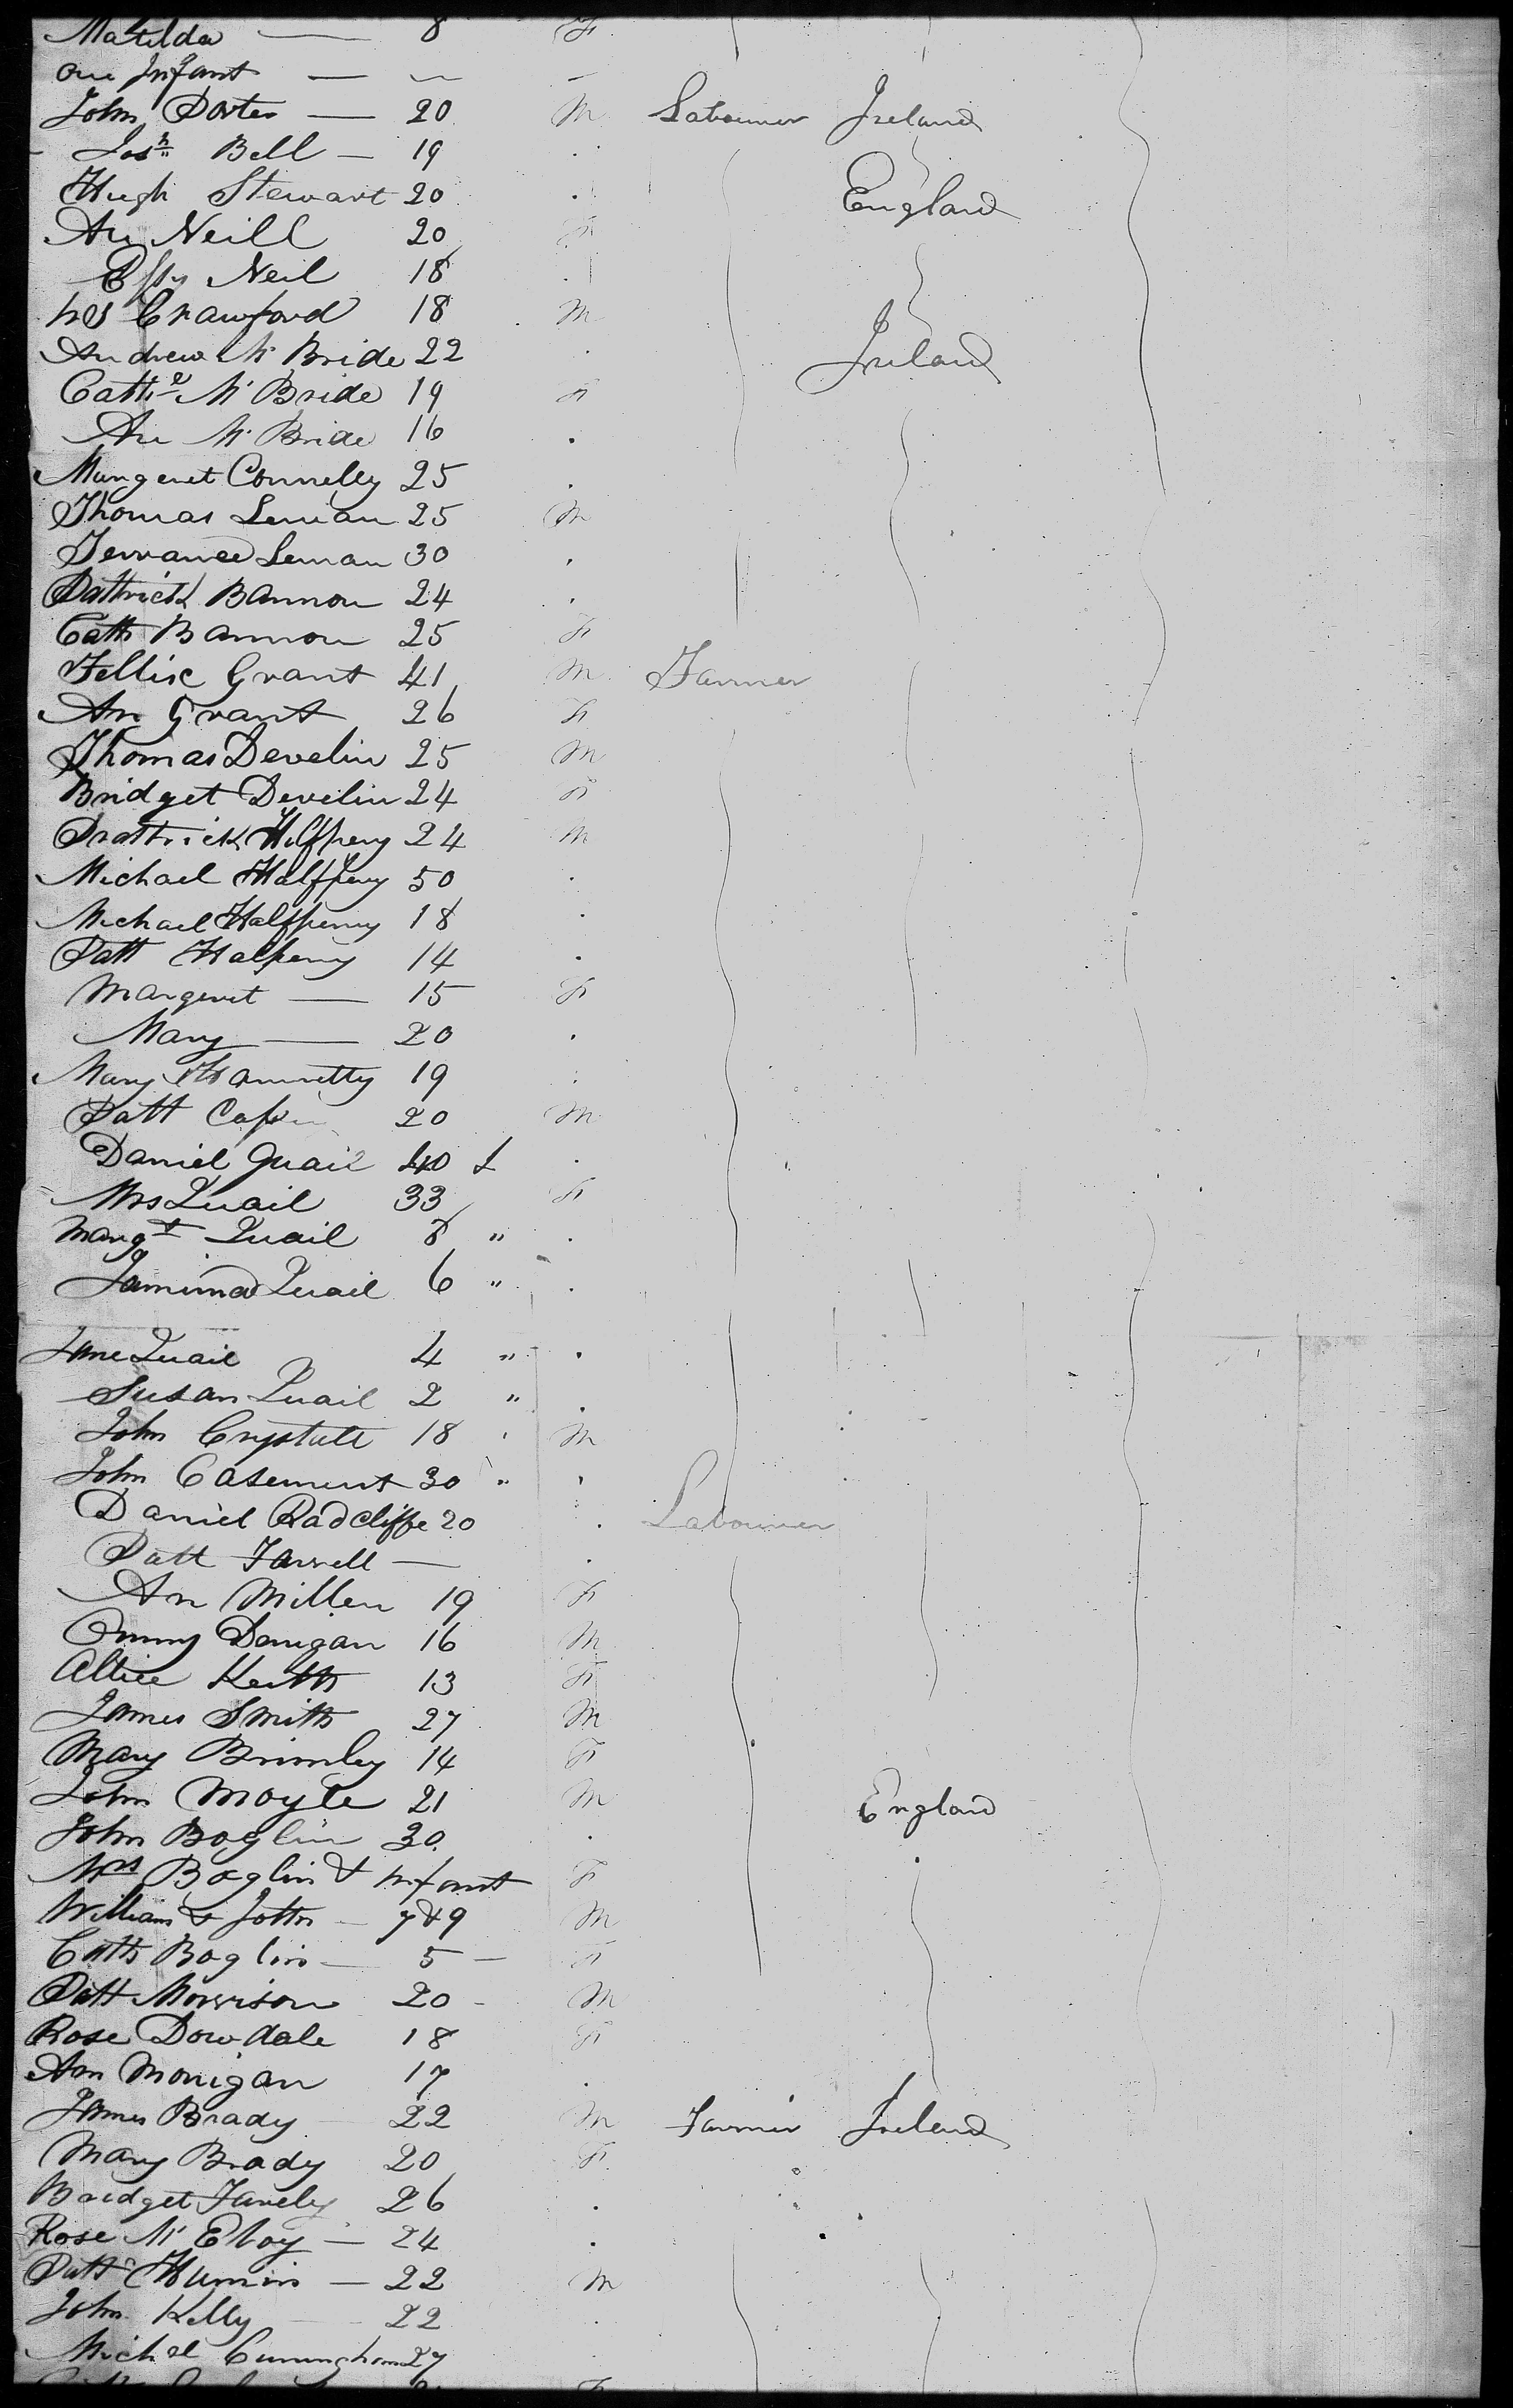 Matilda — 8 F
one Infant — —
John Porter — 20 M Labourer Ireland
Josh Bell — 19
Hugh Stewart 20 England
An Neill 20 F
Effy Neil 18
Crawford 18 M
Andrew Mc Bride 22 Ireland
Cathe Mc Bride 19 F
An Mc Bride 16
Margeret Connelly 25
Thomas Leman 25 M
Terrance Leman 30
Pattrick Bannon 24
Cath Bannon 25 F
Fellix Grant 41 M Farmer
An Grant 26 F
Thomas Develin 25 M
Bridget Develin 24 F
Prattrick Halfpeny 24 M
Michael Halfpeny 50
Michael Halfpenny 18
Patt Halpeny 14
Margeret — 15 F
Mary — 20
Mary 19
Patt 20 M
Daniel Quail 40
Mrs Quail 33 F
Margt Quail 8 "
Jamima Quail 6 "
Jane Quail 4 "
Susan Quail 2 "
John Crystall 18 M
John Casement 30 "
Daniel Radcliffe 20 Labourer
Patt Farrell —
An Millen 19 F
Danigan 16 M
Allice Keith 13 F
James Smith 27 M
Mary Brimley 14 F
John Moyle 21 M England
John Boglin 30
Mrs Boglin & Infant F
William & John — 7 & 9 M
Cath Boglin — 5 — F
Patt Morrison 20 - M
Rose Dowdale 18 F
Ann Monigan 17
James Brady 22 M Farmer Ireland
Mary Brady 20 F
Bridget Farrely 26
Rose Mc Eloy — 24
Patt — 22 M
John Kelly — 22
Michal Cuningham 27